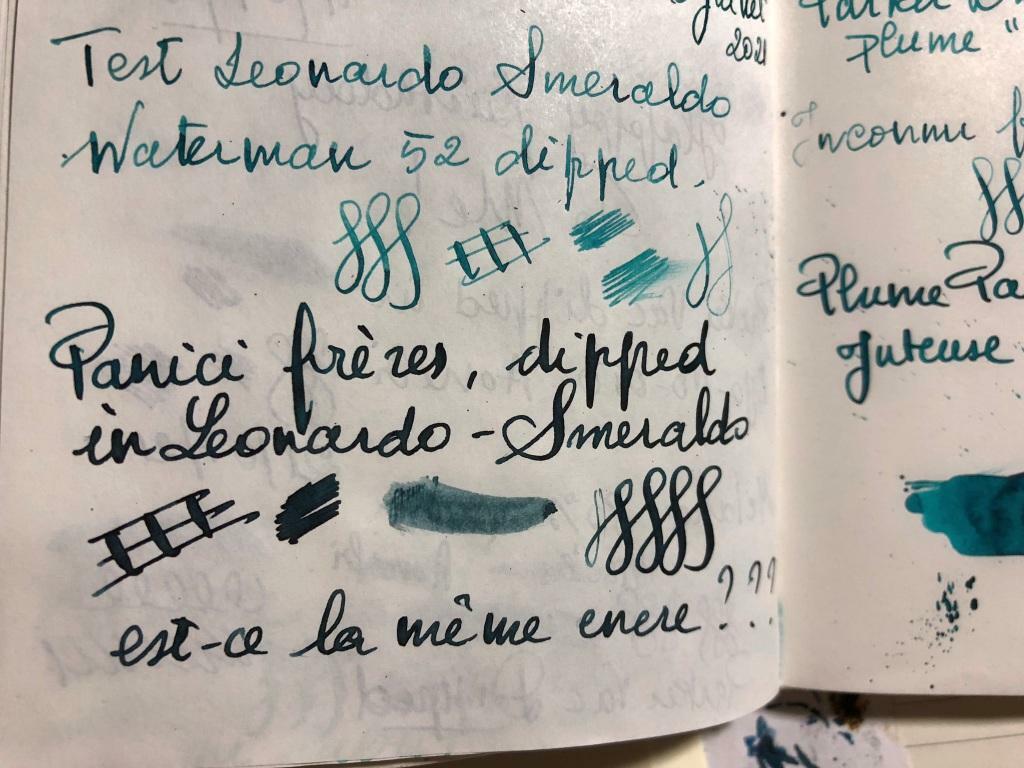 2021
Test Leonardo Smeraldo
Waterman 52 dipped.
Panici frères, dipped
in Leonardo - Smeraldo
est-ce la même encre ???
Plume "
inconnu
Plume Pa
juteuse